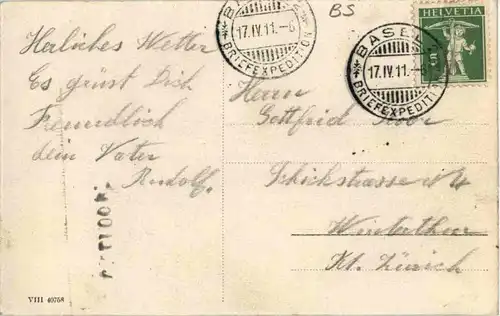 BS
HELVETIA
5
BASEL
17.IV.11.-6
BRIEFEXPEDITION
BASEL
17.IV.11.-
BRIEFEXPEDITION
Herliches Wetter
Es grüst Dich
Freundlich
dein Vater
Rudolf.
Herrn
Gottfried
Schickstrasse No 4
Winterthur
Kt. Zürich
VIII 40758